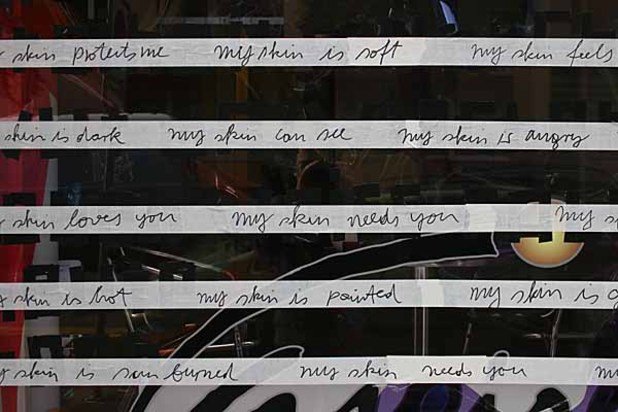 skin protects me my skin is soft my skin feels
skin is dark my skin can see my skin is angry
skin loves you my skin needs you my
skin is hot my skin is painted my skin is
skin is sun burned my skin needs you